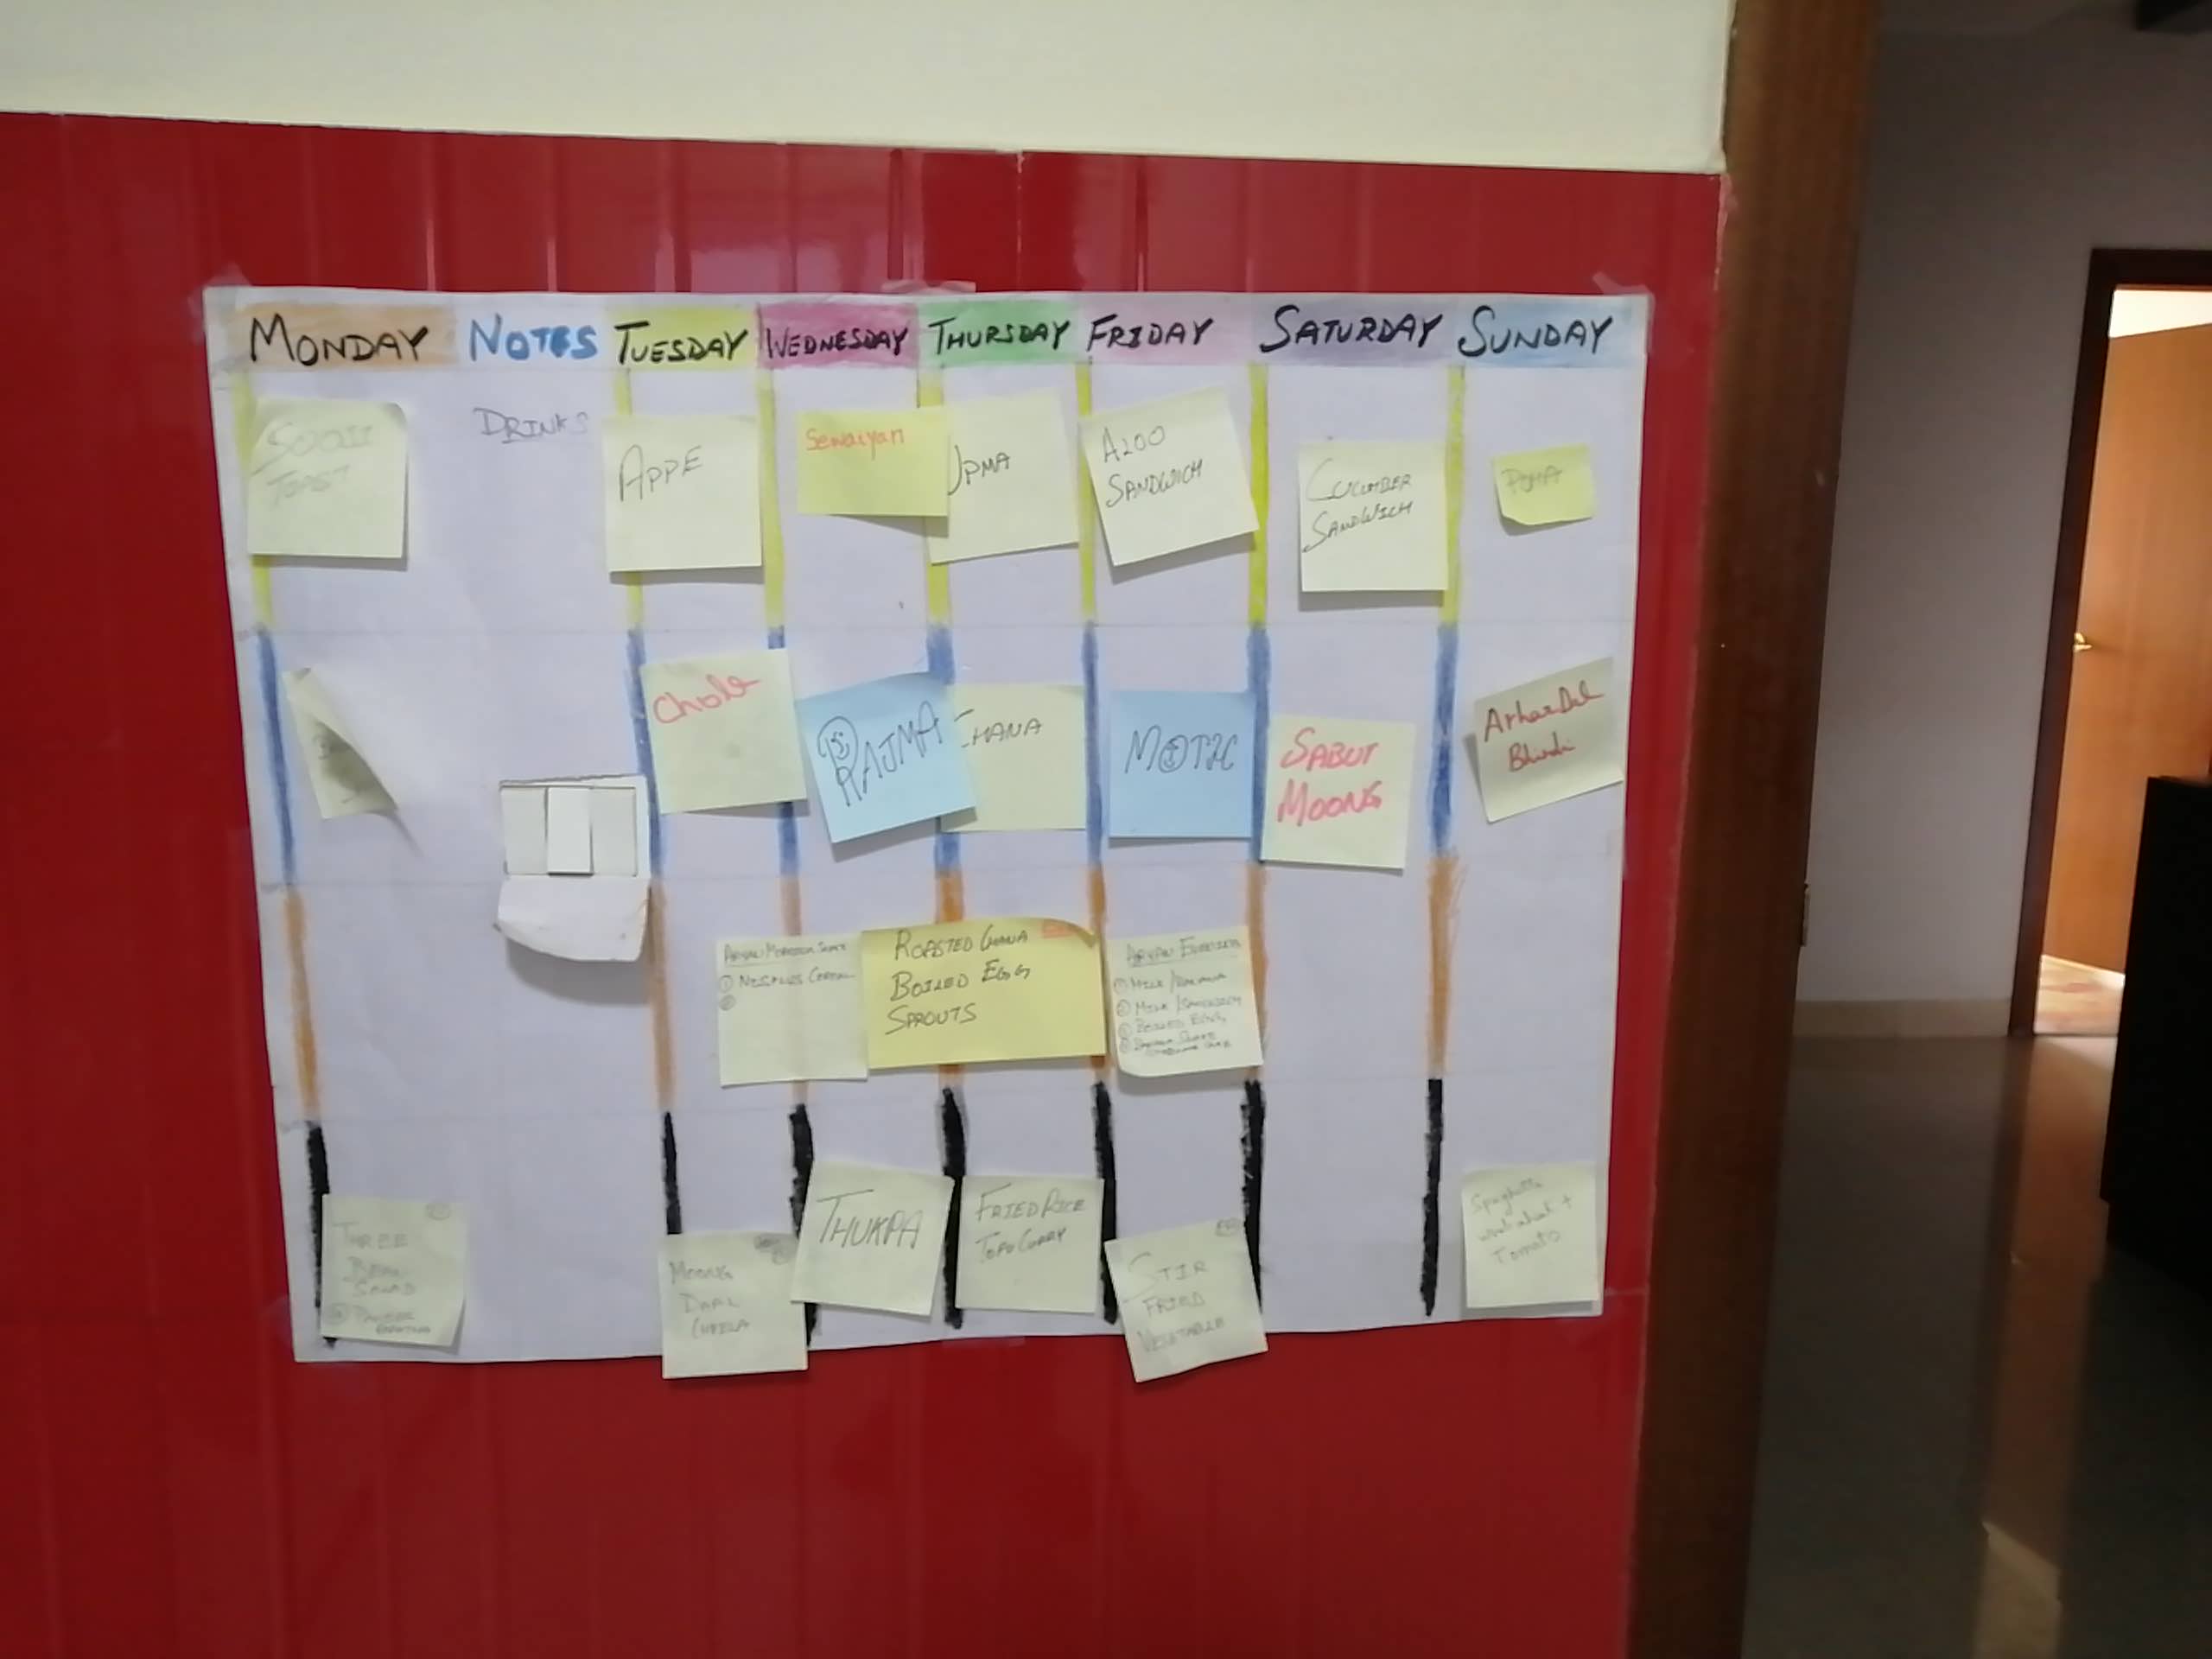 MONDAY NOTES TUESDAY WEDNESDAY THURSDAY FRIDAY SATURDAY SUNDAY
SOOJI
TOAST
DRINKS
APPE
Sewaiyan
UPMA
ALOO
SANDWICH
CUCUMBER
SANDWICH
POHA
Chole
RAJMA
CHANA
MOTH
SABUT
MOONG
Arhar Dal
Bhindi
ARYAN MORNING
① CEREAL
②
ROASTED CHANA
BOILED EGG
SPROUTS
ARYAN EVENING
① MILK / BANANA
② MILK / SANDWICH
③ BOILED EGG,
④ BANANA SHAKE
THREE
BEAN
SALAD
PANEER
MOONG
DAAL
CHEELA
THUKPA
FRIED RICE
TOFU CURRY
STIR
FRIED
VEGETABLE
Spaghetti
+
Tomato